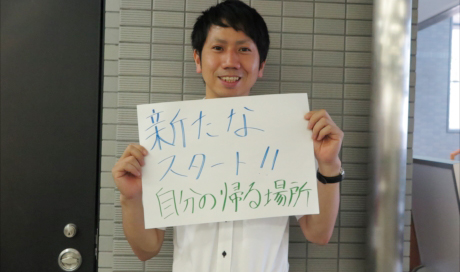 新たな
スタート!!
自分の帰る場所